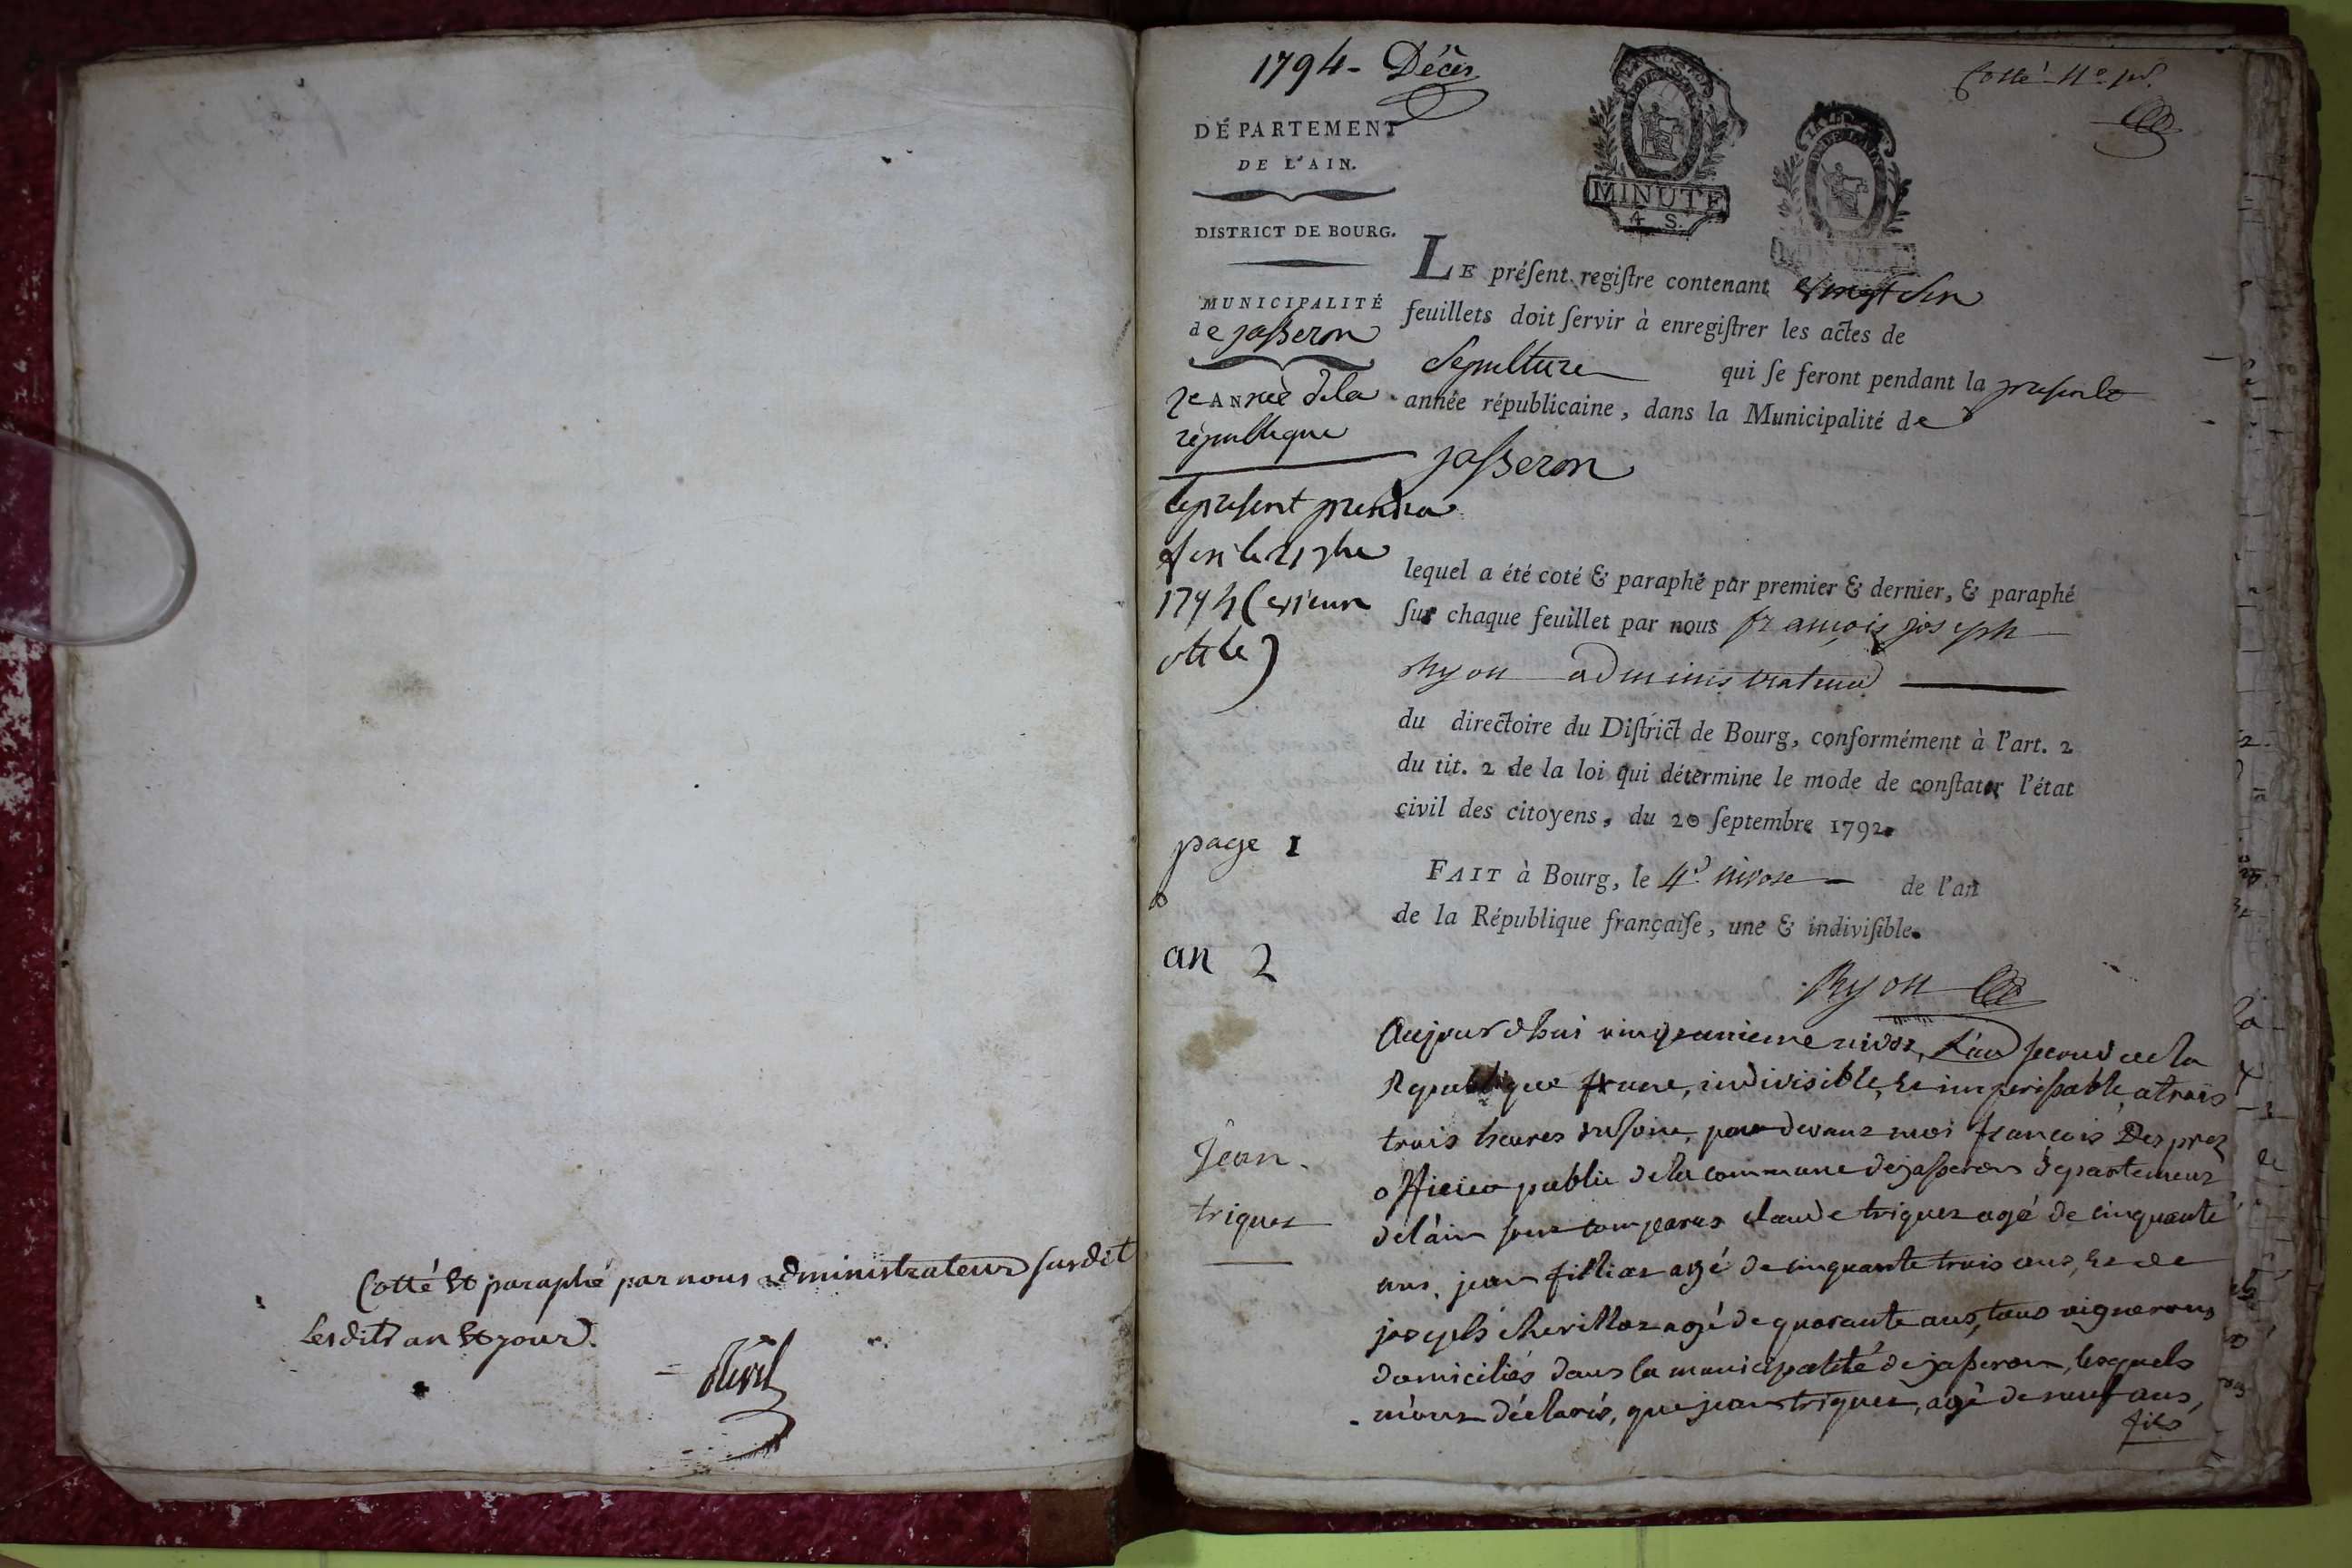 Cotté & paraphé par nous administrateur susdit
lesdits an & jour.
1794 - Décès
Cotté No. pr.
DÉPARTEMENT
DE L'AIN.
DISTRICT DE BOURG.
MUNICIPALITÉ
de jasseron
2e ANnée dela
republique
le present prendra
fin le 21 7bre
1794 (vieux
stile)
page 1
an 2
MINUTE
4. S.
LE préſent regiſtre contenant vingt
feuillets doit ſervir à enregiſtrer les actes de
Sepulture qui ſe feront pendant la presente
année républicaine, dans la Municipalité de
jasseron
lequel a été coté & paraphé par premier & dernier, & paraphé
ſur chaque feuillet par nous françois joseph
administrateur
du directoire du Diſtrict de Bourg, conformément à l'art. 2
du tit. 2 de la loi qui détermine le mode de conſtater l'état
civil des citoyens, du 20 ſeptembre 1792.
FAIT à Bourg, le 4e. nivose de l'an
de la République françaiſe, une & indiviſible.
Jean
triquet
Aujourdhui vingt unieme nivos, L'an second de la
Republique frane, indivisible, et imperissable, a trois
trois heures du soir, par devant moi françois Desprez
officier public de la commune de jasseron departement
de l'ain sont comparus claude triquet agé de cinquante
ans, jean fillion agé de cinquante trois ans, et de
joseph chevillot agé de quarante ans, tous vignerons
domiciliés dans la municipalité de jasseron, lesquels
m'ont déclarés, que jean triquet, agé de neuf ans,
fils